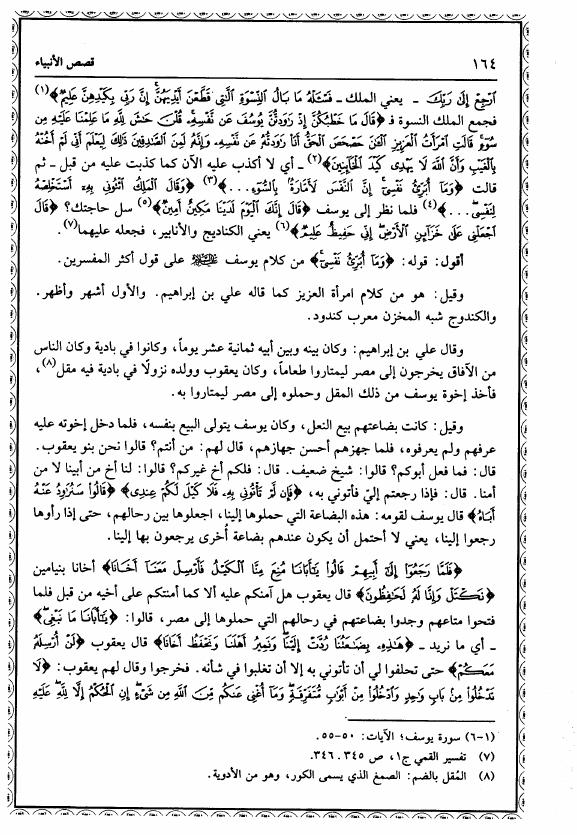 ١٦٤ قصص الأنبياء
ٱرۡجِعۡ إِلَىٰ رَبِّكَ - يعني الملك - فَسۡـَٔلۡهُ مَا بَالُ ٱلنِّسۡوَةِ ٱلَّٰتِي قَطَّعۡنَ أَيۡدِيَهُنَّۚ إِنَّ رَبِّي بِكَيۡدِهِنَّ عَلِيمٞ﴾(١)
فجمع الملك النسوة فـ ﴿قَالَ مَا خَطۡبُكُنَّ إِذۡ رَٰوَدتُّنَّ يُوسُفَ عَن نَّفۡسِهِۦۚ قُلۡنَ حَٰشَ لِلَّهِ مَا عَلِمۡنَا عَلَيۡهِ مِن
سُوٓءٖۚ قَالَتِ ٱمۡرَأَتُ ٱلۡعَزِيزِ ٱلۡـَٰٔنَ حَصۡحَصَ ٱلۡحَقُّ أَنَا۠ رَٰوَدتُّهُۥ عَن نَّفۡسِهِۦ وَإِنَّهُۥ لَمِنَ ٱلصَّٰدِقِينَ ذَٰلِكَ لِيَعۡلَمَ أَنِّي لَمۡ أَخُنۡهُ
بِٱلۡغَيۡبِ وَأَنَّ ٱللَّهَ لَا يَهۡدِي كَيۡدَ ٱلۡخَآئِنِينَ﴾(٢) - أي لا أكذب عليه الآن كما كذبت عليه من قبل - ثم
قالت ﴿وَمَآ أُبَرِّئُ نَفۡسِيٓۚ إِنَّ ٱلنَّفۡسَ لَأَمَّارَةُۢ بِٱلسُّوٓءِ...﴾(٣) ﴿وَقَالَ ٱلۡمَلِكُ ٱئۡتُونِي بِهِۦٓ أَسۡتَخۡلِصۡهُ
لِنَفۡسِيۖ...﴾(٤) فلما نظر إلى يوسف ﴿قَالَ إِنَّكَ ٱلۡيَوۡمَ لَدَيۡنَا مَكِينٌ أَمِينٞ﴾(٥) سل حاجتك؟ ﴿قَالَ
ٱجۡعَلۡنِي عَلَىٰ خَزَآئِنِ ٱلۡأَرۡضِۖ إِنِّي حَفِيظٌ عَلِيمٞ﴾(٦) يعني الكناديج والأنابير، فجعله عليهما(٧).
أقول: قوله: ﴿وَمَآ أُبَرِّئُ نَفۡسِيٓۚ﴾ من كلام يوسف عليه السلام على قول أكثر المفسرين.
وقيل: هو من كلام امرأة العزيز كما قاله علي بن إبراهيم. والأول أشهر وأظهر.
والكندوج شبه المخزن معرب كندود.
وقال علي بن إبراهيم: وكان بينه وبين أبيه ثمانية عشر يوماً، وكانوا في بادية وكان الناس
من الآفاق يخرجون إلى مصر ليمتاروا طعاماً، وكان يعقوب وولده نزولًا في بادية فيه مقل(٨)،
فأخذ إخوة يوسف من ذلك المقل وحملوه إلى مصر ليمتاروا به.
وقيل: كانت بضاعتهم بيع النعل، وكان يوسف يتولى البيع بنفسه، فلما دخل إخوته عليه
عرفهم ولم يعرفوه، فلما جهزهم أحسن جهازهم، قال لهم: من أنتم؟ قالوا نحن بنو يعقوب.
قال: فما فعل أبوكم؟ قالوا: شيخ ضعيف. قال: فلكم أخ غيركم؟ قالوا: لنا أخ من أبينا لا من
أمنا. قال: فإذا رجعتم إليّ فأتوني به، ﴿فَإِن لَّمۡ تَأۡتُونِي بِهِۦ فَلَا كَيۡلَ لَكُمۡ عِندِي﴾ ﴿قَالُواْ سَنُرَٰوِدُ عَنۡهُ
أَبَاهُ﴾ قال يوسف لقومه: هذه البضاعة التي حملوها إلينا، اجعلوها بين رحالهم، حتى إذا رأوها
رجعوا إلينا، يعني لا أحتمل أن يكون عندهم بضاعة أُخرى يرجعون بها إلينا.
﴿فَلَمَّا رَجَعُوٓاْ إِلَىٰٓ أَبِيهِمۡ قَالُواْ يَٰٓأَبَانَا مُنِعَ مِنَّا ٱلۡكَيۡلُ فَأَرۡسِلۡ مَعَنَآ أَخَانَا﴾ أخانا بنيامين
﴿نَكۡتَلۡ وَإِنَّا لَهُۥ لَحَٰفِظُونَ﴾ قال يعقوب هل آمنكم عليه ألا كما أمنتكم على أخيه من قبل فلما
فتحوا متاعهم وجدوا بضاعتهم في رحالهم التي حملوها إلى مصر، قالوا: ﴿يَٰٓأَبَانَا مَا نَبۡغِيۖ﴾
- أي ما نريد - ﴿هَٰذِهِۦ بِضَٰعَتُنَا رُدَّتۡ إِلَيۡنَاۖ وَنَمِيرُ أَهۡلَنَا وَنَحۡفَظُ أَخَانَا﴾ قال يعقوب ﴿لَنۡ أُرۡسِلَهُۥ
مَعَكُمۡ﴾ حتى تحلفوا لي أن تأتوني به إلا أن تغلبوا في شأنه. فخرجوا وقال لهم يعقوب: ﴿لَا
تَدۡخُلُواْ مِنۢ بَابٖ وَٰحِدٖ وَٱدۡخُلُواْ مِنۡ أَبۡوَٰبٖ مُّتَفَرِّقَةٖۖ وَمَآ أُغۡنِي عَنكُم مِّنَ ٱللَّهِ مِن شَيۡءٍۖ إِنِ ٱلۡحُكۡمُ إِلَّا لِلَّهِۖ عَلَيۡهِ
(١-٦) سورة يوسف؛ الآيات: ٥٠-٥٥.
(٧) تفسير القمي ج١، ص ٣٤٥. ٣٤٦.
(٨) المُقل بالضم: الصمغ الذي يسمى الكور، وهو من الأدوية.